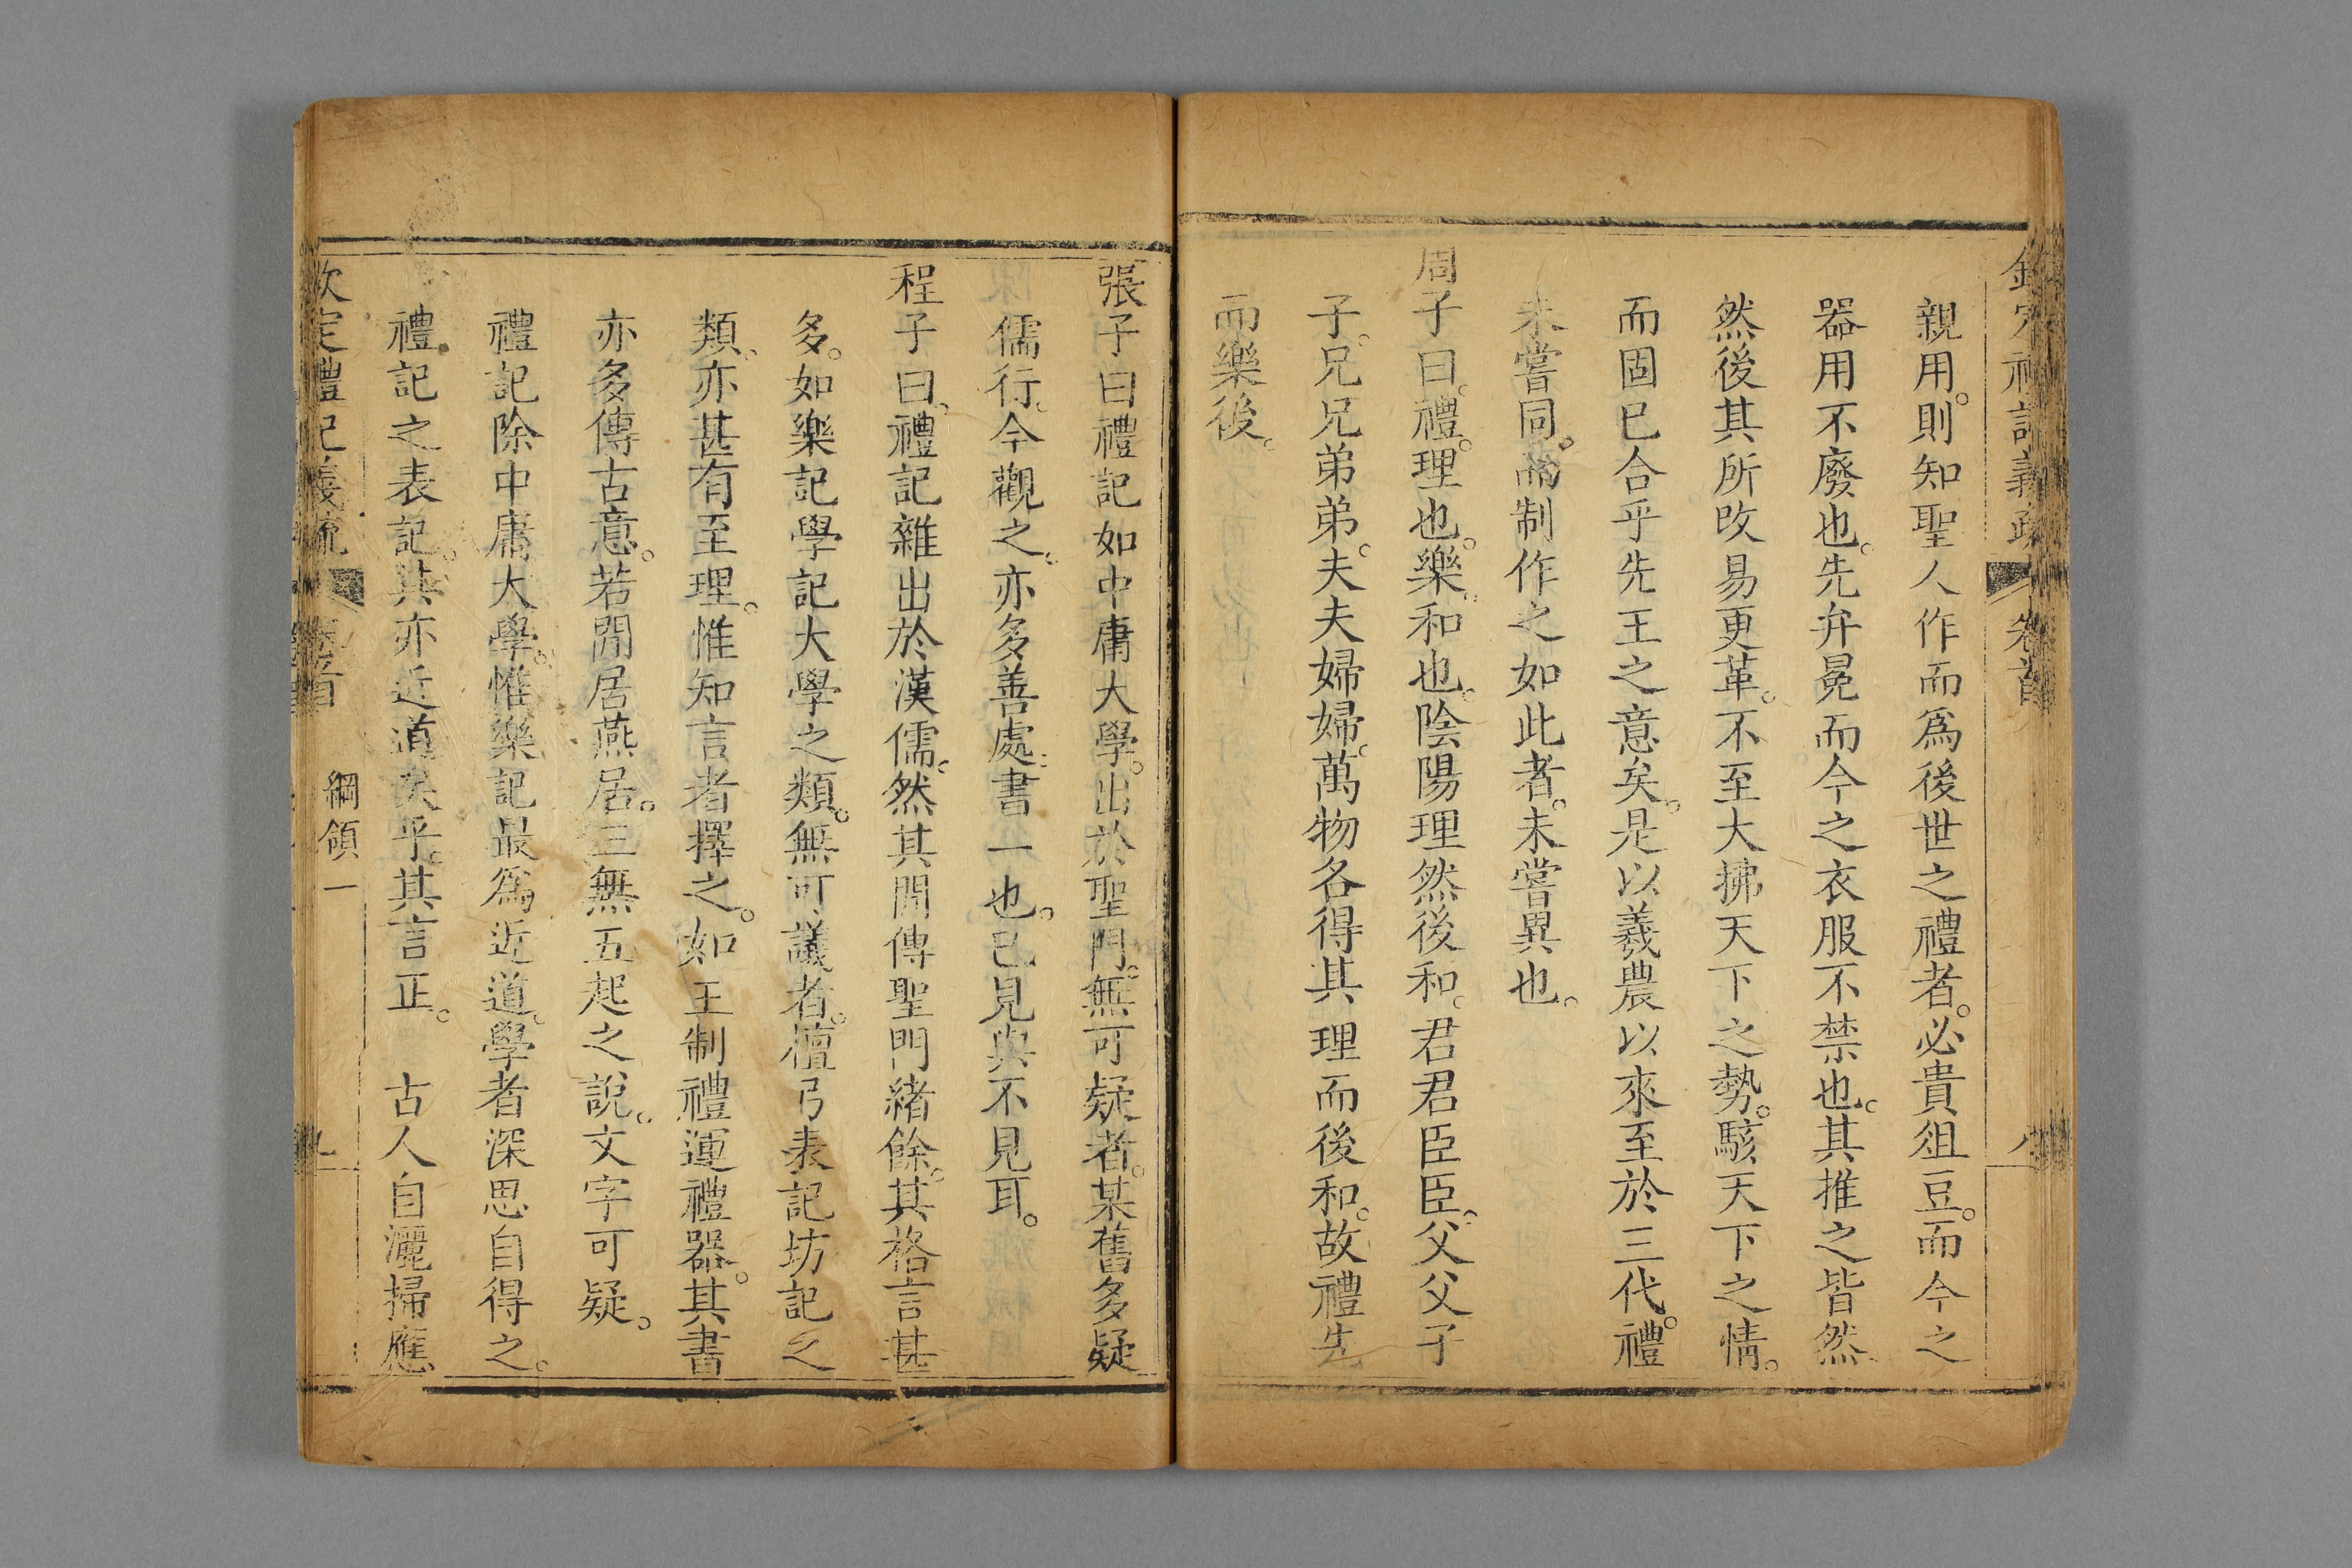 欽定禮記義疏 卷首 八
親用。則知聖人作而爲後世之禮者。必貴俎豆。而今之
器用不廢也。先弁冕而今之衣服不禁也。其推之皆然
然後其所改易更革。不至大拂天下之勢。駭天下之情。
而固已合乎先王之意矣。是以羲農以來至於三代。禮
未嘗同。而制作之如此者。未嘗異也。
周子曰。禮。理也。樂。和也。陰陽理然後和。君君臣臣。父父子
子。兄兄弟弟。夫夫婦婦。萬物各得其理而後和。故禮先
而樂後。
張子曰禮記如中庸大學。出於聖門。無可疑者。某舊多疑
儒行。今觀之。亦多善處。書一也。已見與不見耳。
程子曰。禮記雜出於漢儒。然其閒傳聖門緒餘。其格言甚
多。如樂記學記大學之類。無可議者。檀弓表記坊記之
類。亦甚有至理。惟知言者擇之。如王制禮運禮器。其書
亦多傳古意。若閒居燕居。三無五起之說。文字可疑。
禮記除中庸大學。惟樂記最爲近道。學者深思自得之。
禮記之表記。其亦近道矣乎。其言正。 古人自灑掃應
欽定禮記義疏 卷首 綱領一 九